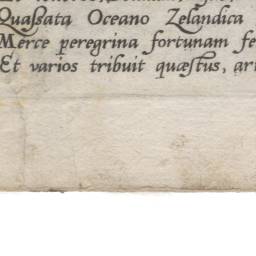 Quaſsata Oceano Zelandica
Merce peregrina fortunam fe
Et varios tribuit quæstus, ar